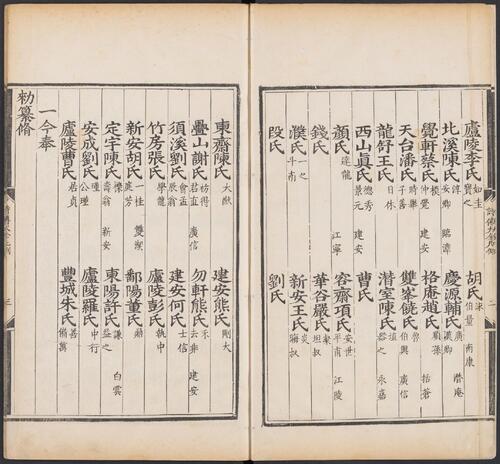 廬陵李氏 如圭 寶之 胡氏 泳 伯量 南康
北溪陳氏 淳 安卿 臨漳 慶源輔氏 廣 漢卿 潛庵
覺軒蔡氏 模 仲覺 建安 格庵趙氏 順孫 括蒼
天台潘氏 時舉 子善 雙峯饒氏 魯 伯輿 廣信
龍舒王氏 日休 潛室陳氏 埴 器之 永嘉
西山眞氏 德秀 景元 建安 曹氏
顏氏 達龍 江寧 容齋項氏 安世 平甫 江陵
錢氏 華谷嚴氏 粲 坦叔
濮氏 一之 斗南 新安王氏 炎 晦叔
段氏 劉氏
東齋陳氏 大猷 建安熊氏 剛大
疊山謝氏 枋得 君直 廣信 勿軒熊氏 禾 去非 建安
須溪劉氏 會孟 辰翁 建安何氏 士信
竹房張氏 學龍 廬陵彭氏 執中
新安胡氏 一桂 庭芳 雙湖 鄱陽董氏 鼎
定宇陳氏 櫟 壽翁 新安 東陽許氏 謙 益之 白雲
安成劉氏 瑾 公瑾 廬陵羅氏 中行
廬陵曹氏 居貞 豐城朱氏 善 備萬
一今奉
勑纂脩